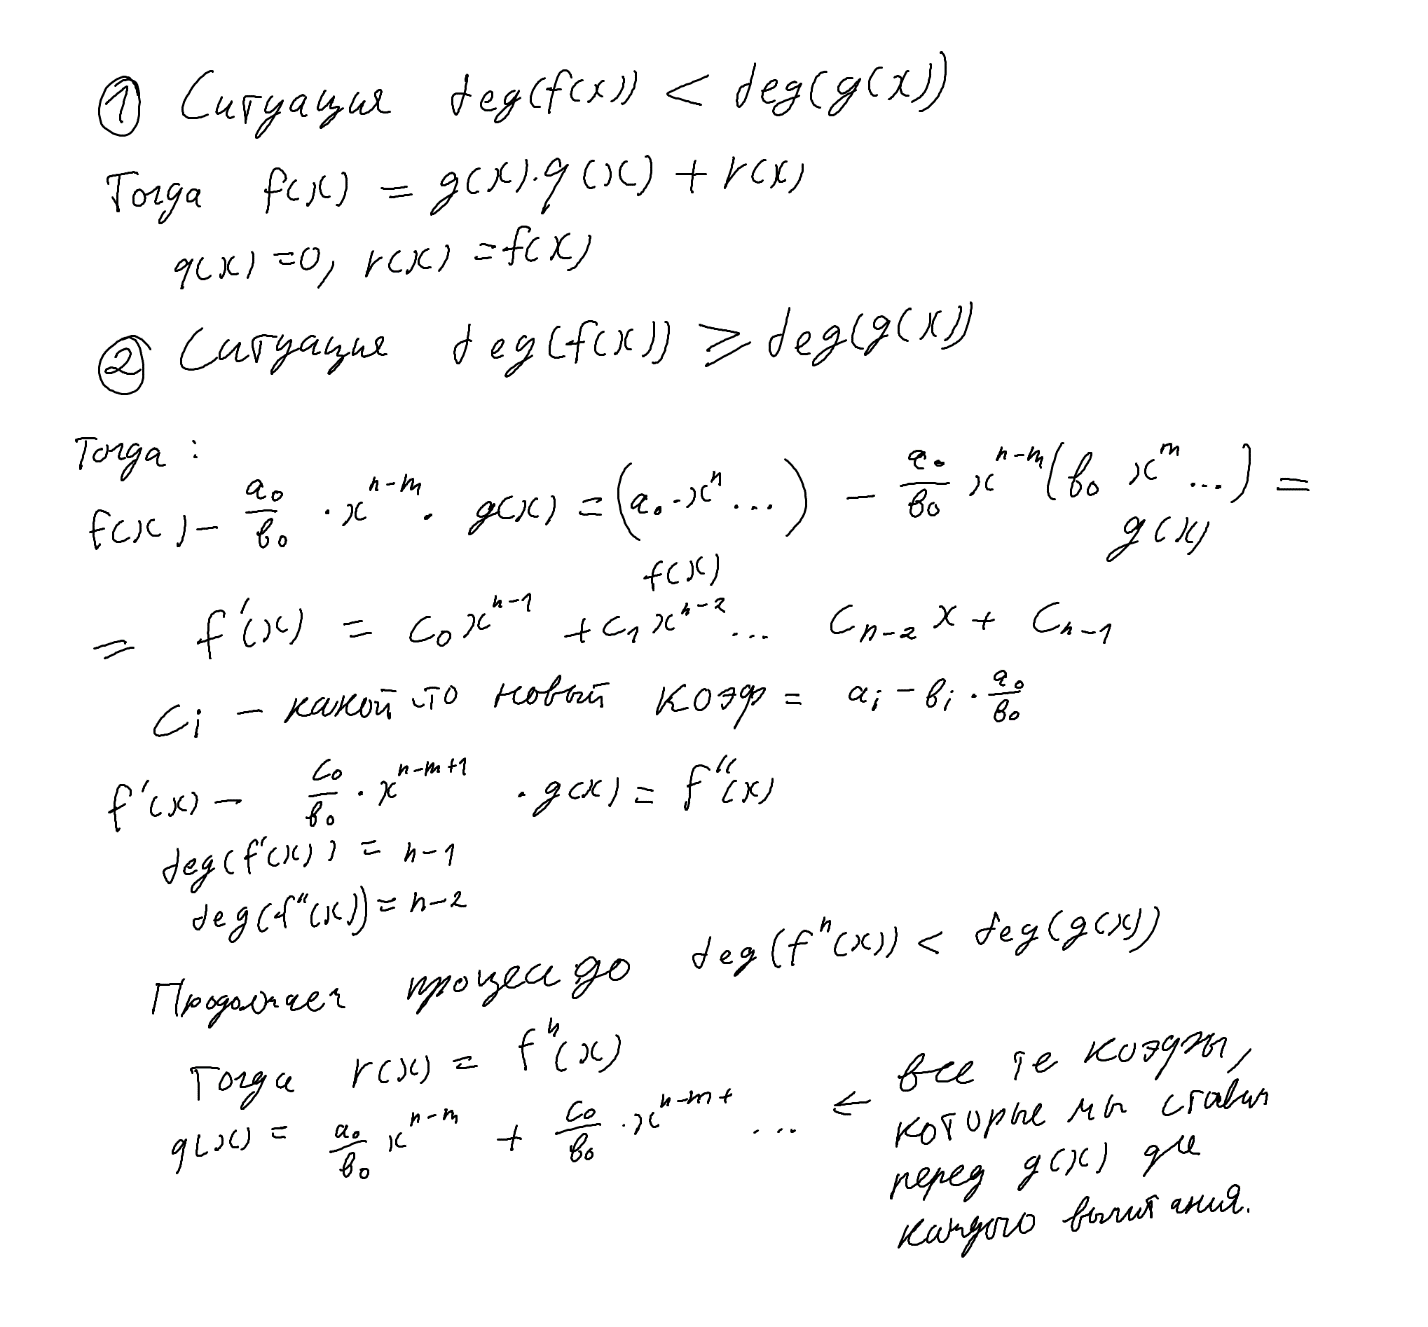 ① Ситуация deg(f(x)) < deg(g(x))
Тогда f(x) = g(x)·q(x) + r(x)
q(x) = 0, r(x) = f(x)
② Ситуация deg(f(x)) ⩾ deg(g(x))
Тогда :
f(x) - a₀/b₀ · xⁿ⁻ᵐ · g(x) = (a₀·xⁿ...) - a₀/b₀ xⁿ⁻ᵐ(b₀ xᵐ...) =
f(x) g(x)
= f'(x) = c₀xⁿ⁻¹ + c₁xⁿ⁻² ... Cₙ₋₂ x + Cₙ₋₁
Ci - какой то новый коэф = aᵢ - bᵢ · a₀/b₀
f'(x) - c₀/b₀ · xⁿ⁻ᵐ⁺¹ · g(x) = f''(x)
deg(f'(x)) = n-1
deg(f''(x)) = n-2
Продолжаем процесс до deg(fⁿ(x)) < deg(g(x))
Тогда r(x) = fⁿ(x)
q(x) = a₀/b₀ xⁿ⁻ᵐ + c₀/b₀ · xⁿ⁻ᵐ⁺ ... ←
все те коэфы,
которые мы ставим
перед g(x) для
каждого вычитания.